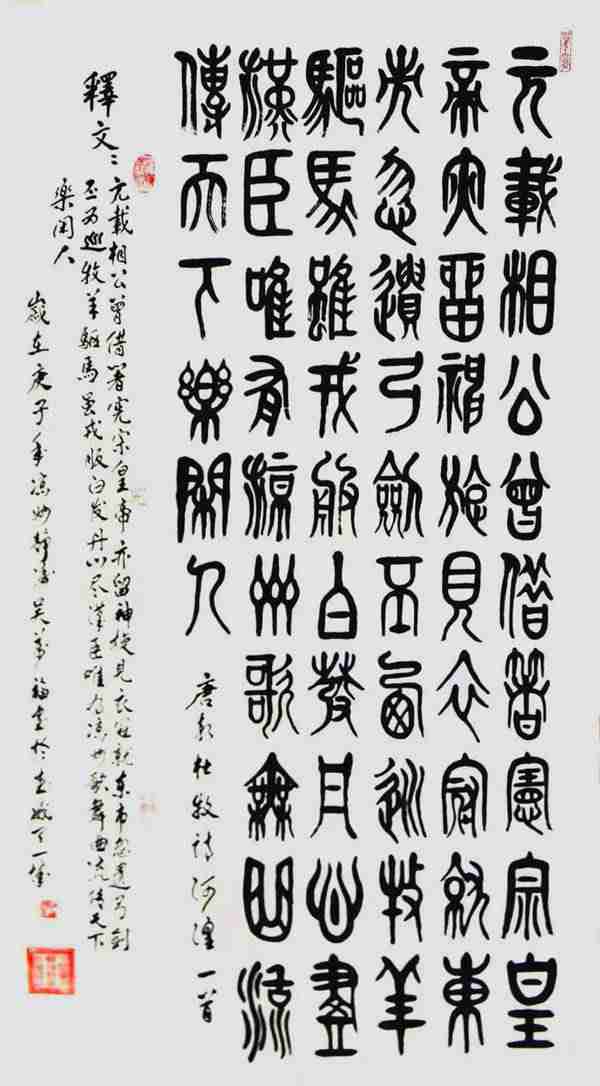 元載相公曾借箸憲宗皇
帝亦留神旋見衣冠就東
市忽遺弓劍不西巡牧羊
驅馬雖戎服白發丹心盡
漢臣唯有涼州歌舞曲流
傳天下樂閑人
唐朝杜牧詩河湟一首
釋文:元載相公曾借箸宪宗皇帝亦留神旋見衣冠就东市忽遺弓剑
不西巡牧羊驱馬虽戎服白发丹心尽漢臣唯有凉州歌舞曲流传天下
樂闲人
歲在庚子年凉州